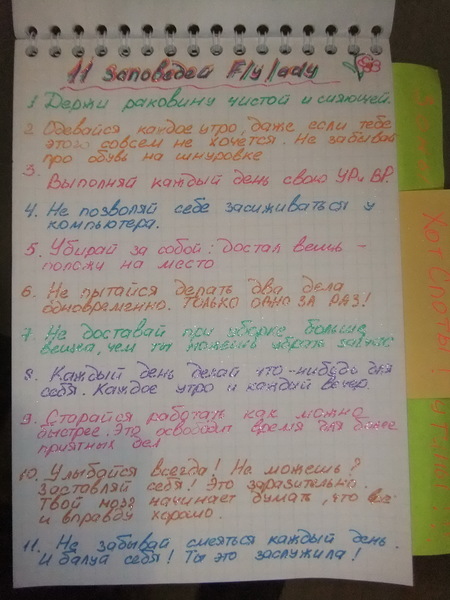 11 заповедей Flylady
1. Держи раковину чистой и сияющей.
2. Одевайся каждое утро, даже если тебе
этого совсем не хочется. Не забывай
про обувь на шнуровке
3. Выполняй каждый день свою УР и ВР.
4. Не позволяй себе засиживаться у
компьютера.
5. Убирай за собой: достал вещь -
положи на место
6. Не пытайся делать два дела
одновременно. ТОЛЬКО ОДНО ЗА РАЗ!
7. Не доставай при уборке больше
вещей, чем ты можешь убрать за час
8. Каждый день делай что-нибудь для
себя. Каждое утро и каждый вечер.
9. Старайся работать как можно
быстрее. Это освободит время для более
приятных дел
10. Улыбайся всегда! Не можешь?
Заставляй себя! Это заразительно.
Твой мозг начинает думать, что все
и вправду хорошо.
11. Не забывай смеяться каждый день.
И балуй себя! Ты это заслужила!
Хот Споты!